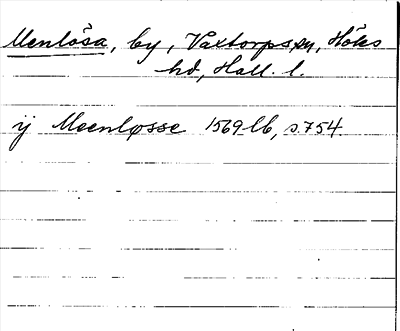 Menlösa, by, Vaxtorps sn, Höks
hd, Hall. l.
ij Meenløsse 1569 lb, s. 754.